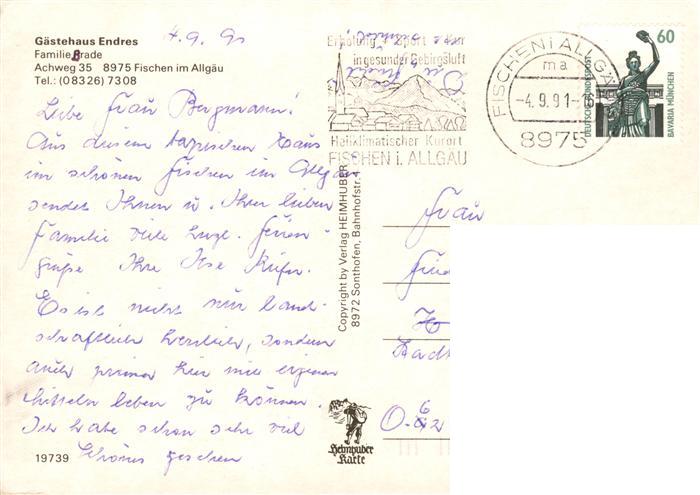 Gästehaus Endres
Familie Brade
Achweg 35 8975 Fischen im Allgäu
Tel.: (08326) 7308
4.9.91
Liebe Frau Bergmann!
Aus diesem typischen Haus
im schönen Fischen im Allgäu
sendet Ihnen u. Ihrer lieben
Familie viele herzl. Ferien-
grüße Ihre Ilse
Es ist nicht nur land-
schaftlich herrlich, sondern
auch prima hier mit eigenen
Mitteln leben zu können.
Ich habe schon sehr viel
Schönes gesehen
19739
Erholung + Sport + Kur
in gesunder Gebirgsluft
Heilklimatischer Kurort
FISCHEN i. ALLGÄU
FISCHEN i ALLGÄU
ma
-4.9.91-16
8975
60
DEUTSCHE BUNDESPOST
BAVARIA MÜNCHEN
Copyright by Verlag HEIMHUBER
8972 Sonthofen, Bahnhofstr. 1
Frau
Heimhuber
Karte